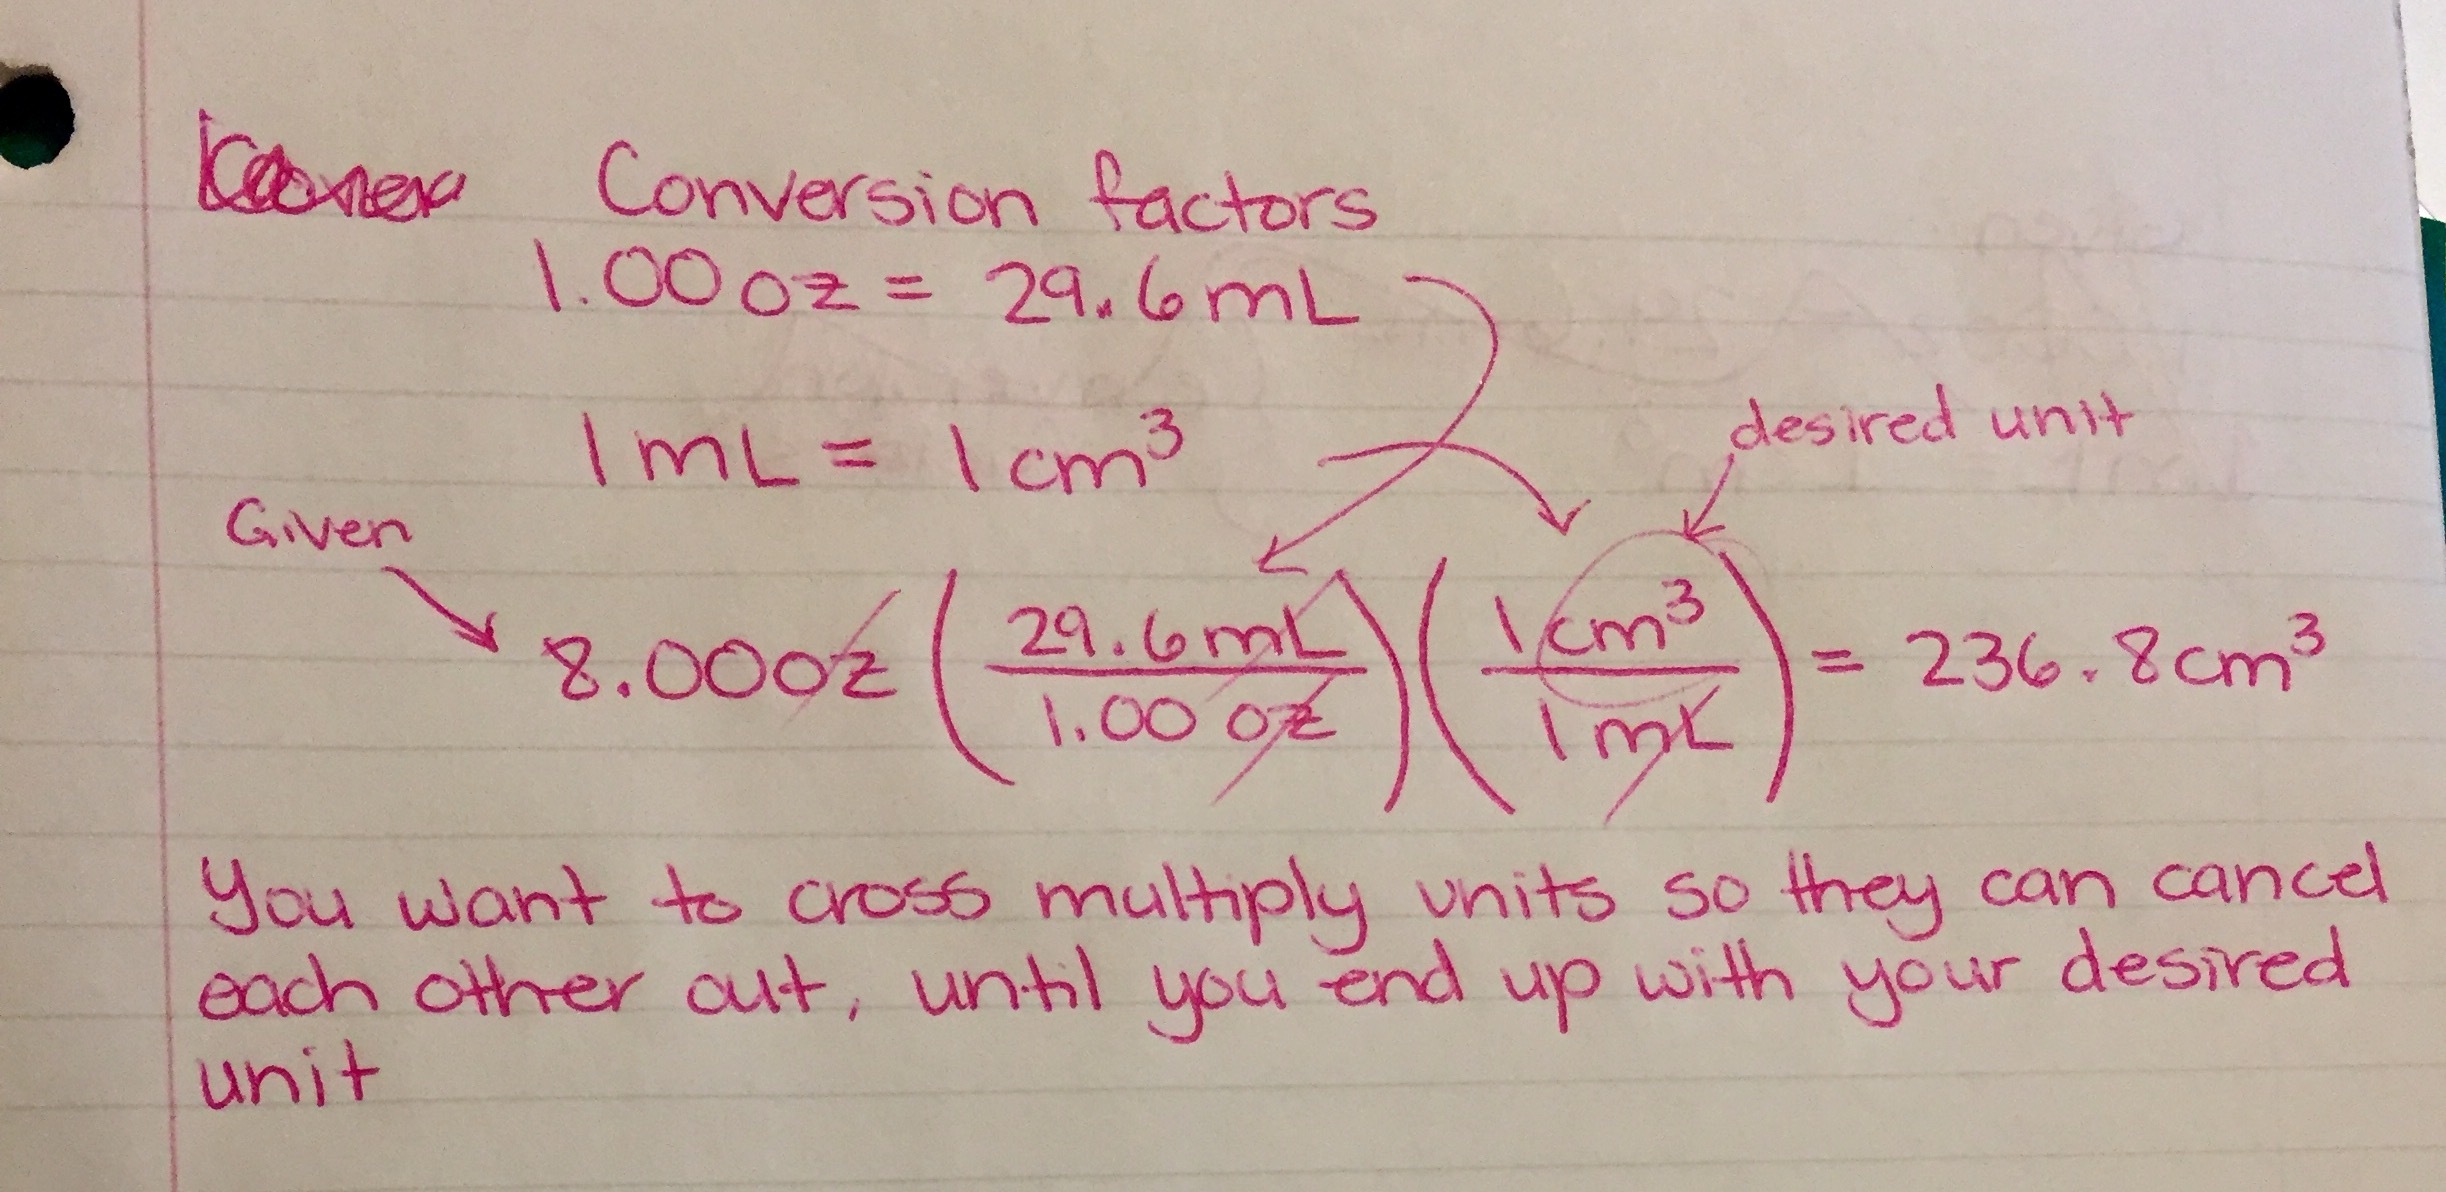 Conversion factors
1.00 oz = 29.6 mL
1 mL = 1 cm³
desired unit
Given
8.00 oz (29.6 mL / 1.00 oz) (1 cm³ / 1 mL) = 236.8 cm³
You want to cross multiply units so they can cancel
each other out, until you end up with your desired
unit